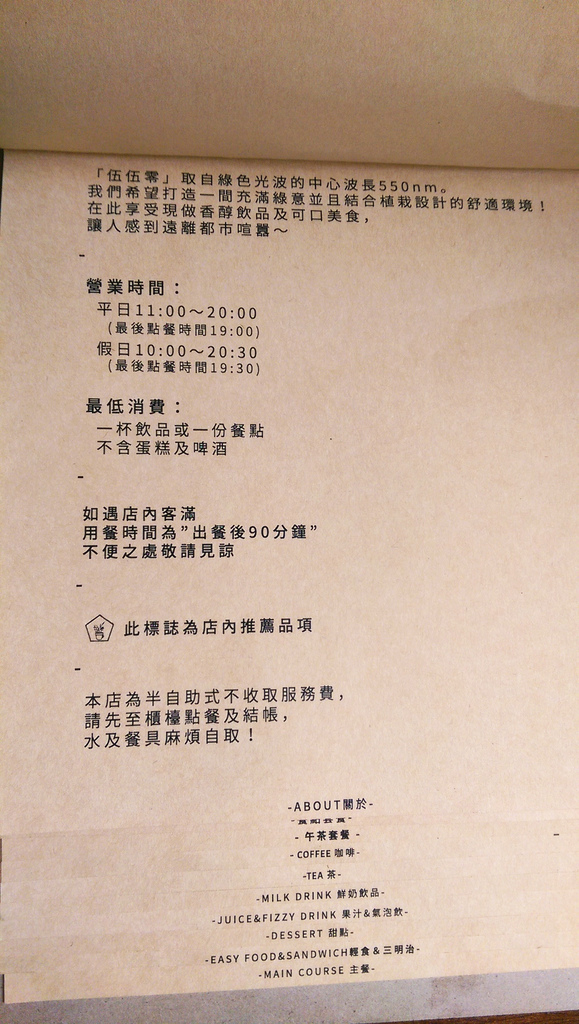 「伍伍零」取自綠色光波的中心波長550nm。
我們希望打造一間充滿綠意並且結合植栽設計的舒適環境！
在此享受現做香醇飲品及可口美食，
讓人感到遠離都市喧囂～
-
營業時間：
平日11:00～20:00
(最後點餐時間19:00)
假日10:00～20:30
(最後點餐時間19:30)
最低消費：
一杯飲品或一份餐點
不含蛋糕及啤酒
-
如遇店內客滿
用餐時間為”出餐後90分鐘”
不便之處敬請見諒
-
此標誌為店內推薦品項
-
本店為半自助式不收取服務費，
請先至櫃檯點餐及結帳，
水及餐具麻煩自取！
-ABOUT關於-
- 午茶套餐 -
- COFFEE 咖啡-
-TEA 茶-
-MILK DRINK 鮮奶飲品-
-JUICE&FIZZY DRINK 果汁&氣泡飲-
-DESSERT 甜點-
-EASY FOOD&SANDWICH輕食&三明治-
-MAIN COURSE 主餐-